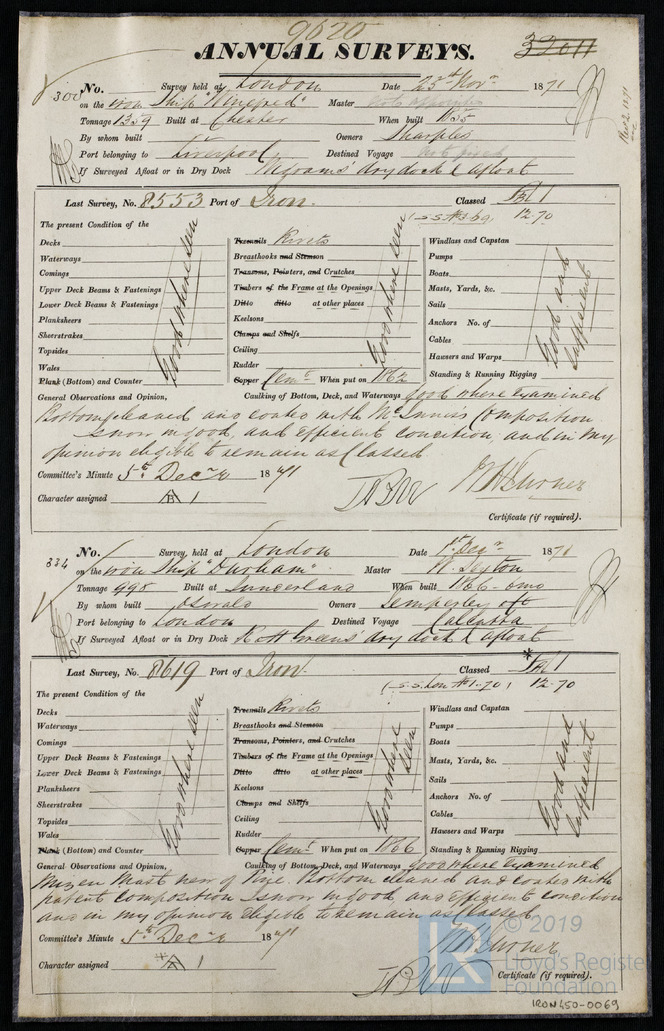 9620
ANNUAL SURVEYS.
32011
300 No. Survey held at London Date 25th Novr 1871
on the iron Ship "Winefred" Master not appointed
Tonnage 1359 Built at Chester When built 1855
By whom built Owners Sharples
Port belonging to Liverpool Destined Voyage not fixed
If Surveyed Afloat or in Dry Dock Wigrams' dry dock & afloat
Last Survey, No. 8553 Port of Iron. Classed 1
12.70
The present Condition of the
Decks Treenails Rivets Windlass and Capstan
Waterways Breasthooks and Stemson Pumps
Comings Transoms, Pointers, and Crutches Boats
Upper Deck Beams & Fastenings Timbers of the Frame at the Openings Masts, Yards, &c.
Lower Deck Beams & Fastenings Ditto ditto at other places Sails
Planksheers Keelsons Anchors No. of
Sheerstrakes Clamps and Shelfs Cables
Topsides Ceiling Hawsers and Warps
Wales Rudder Standing & Running Rigging
Plank (Bottom) and Counter Copper Cemt When put on 1862
Good where seen
Good where seen
Good and Sufficient
General Observations and Opinion, Caulking of Bottom, Deck, and Waterways good where examined
Bottom cleaned and coated with McInnes Composition
is now in good, and efficient condition, and in my
opinion eligible to remain as Classed
Committee's Minute 5th Decr 1871
Character assigned A 1
Certificate (if required).
334 No. Survey held at London Date 1st Decr 1871
on the iron Ship "Durham". Master W. Sexton
Tonnage 998 Built at Sunderland When built 1866
By whom built Oswald Owners Temperley &c
Port belonging to London Destined Voyage Calcutta
If Surveyed Afloat or in Dry Dock dry dock & afloat
Last Survey, No. 8619 Port of Iron. Classed 1
(S.S. Lon No 1-70) 12.70
The present Condition of the
Decks Treenails Rivets Windlass and Capstan
Waterways Breasthooks and Stemson Pumps
Comings Transoms, Pointers, and Crutches Boats
Upper Deck Beams & Fastenings Timbers of the Frame at the Openings Masts, Yards, &c.
Lower Deck Beams & Fastenings Ditto ditto at other places Sails
Planksheers Keelsons Anchors No. of
Sheerstrakes Clamps and Shelfs Cables
Topsides Ceiling Hawsers and Warps
Wales Rudder Standing & Running Rigging
Plank (Bottom) and Counter Copper Cemt When put on 1866
Good where seen
Good where seen
Good and Sufficient
General Observations and Opinion, Caulking of Bottom, Deck, and Waterways good where Examined
Mizen Mast new of Pine. Bottom cleaned and coated with
patent composition is now in good, and efficient condition
and in my opinion eligible to remain as Classed
Committee's Minute 5th Decr 1871
Character assigned A 1
Certificate (if required).
© 2019
Lloyd's Register
Foundation
IRON450-0069